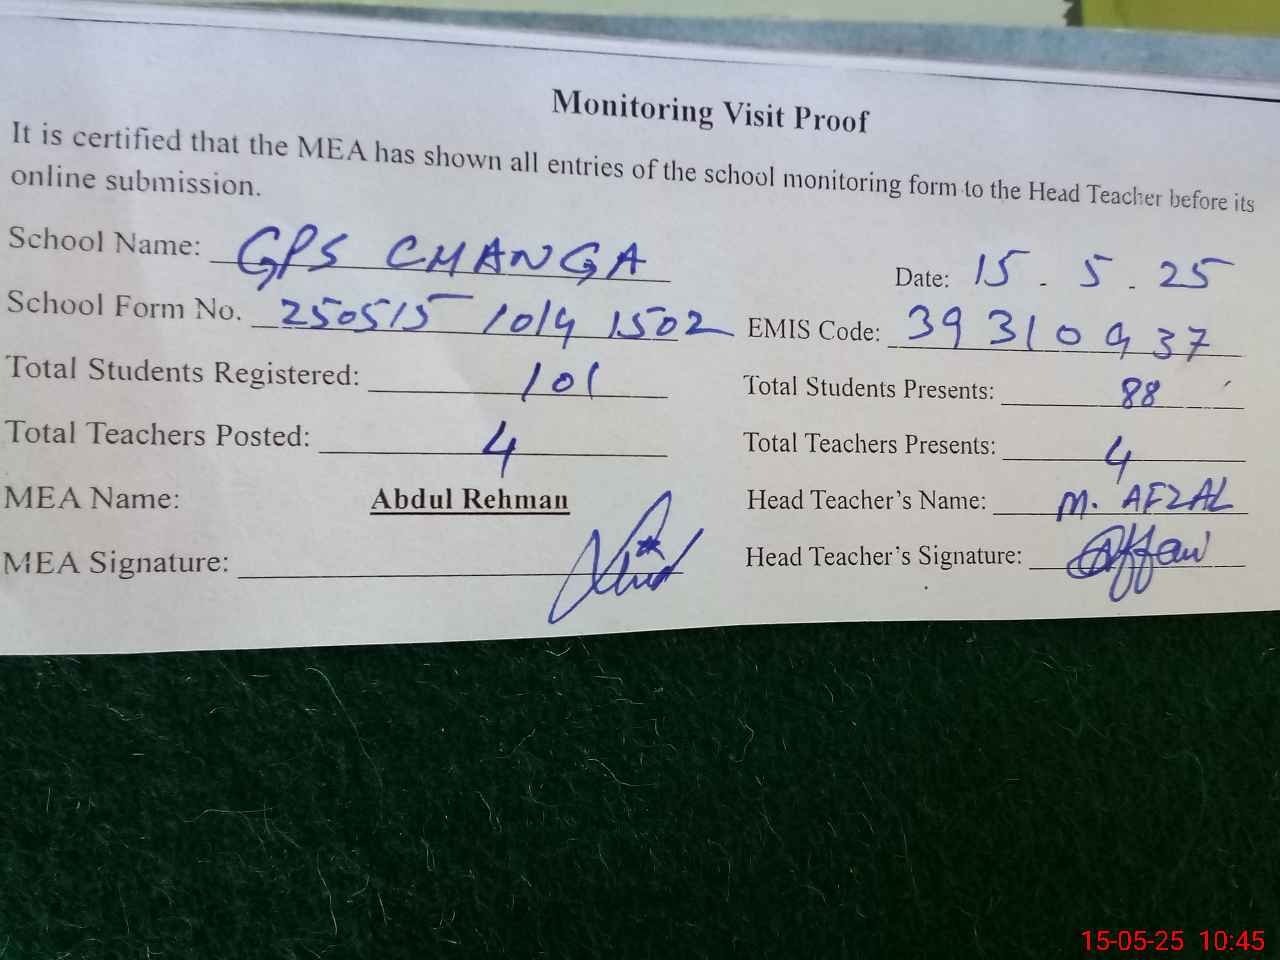 Monitoring Visit Proof
It is certified that the MEA has shown all entries of the school monitoring form to the Head Teacher before its
online submission.
School Name: GPS CHANGA
Date: 15 . 5 . 25
School Form No. 250515 1014 1502
EMIS Code: 39310937
Total Students Registered: 101
Total Students Presents: 88
Total Teachers Posted: 4
Total Teachers Presents: 4
MEA Name: Abdul Rehman
Head Teacher's Name: M. AFZAL
MEA Signature:
Head Teacher's Signature:
15-05-25 10:45